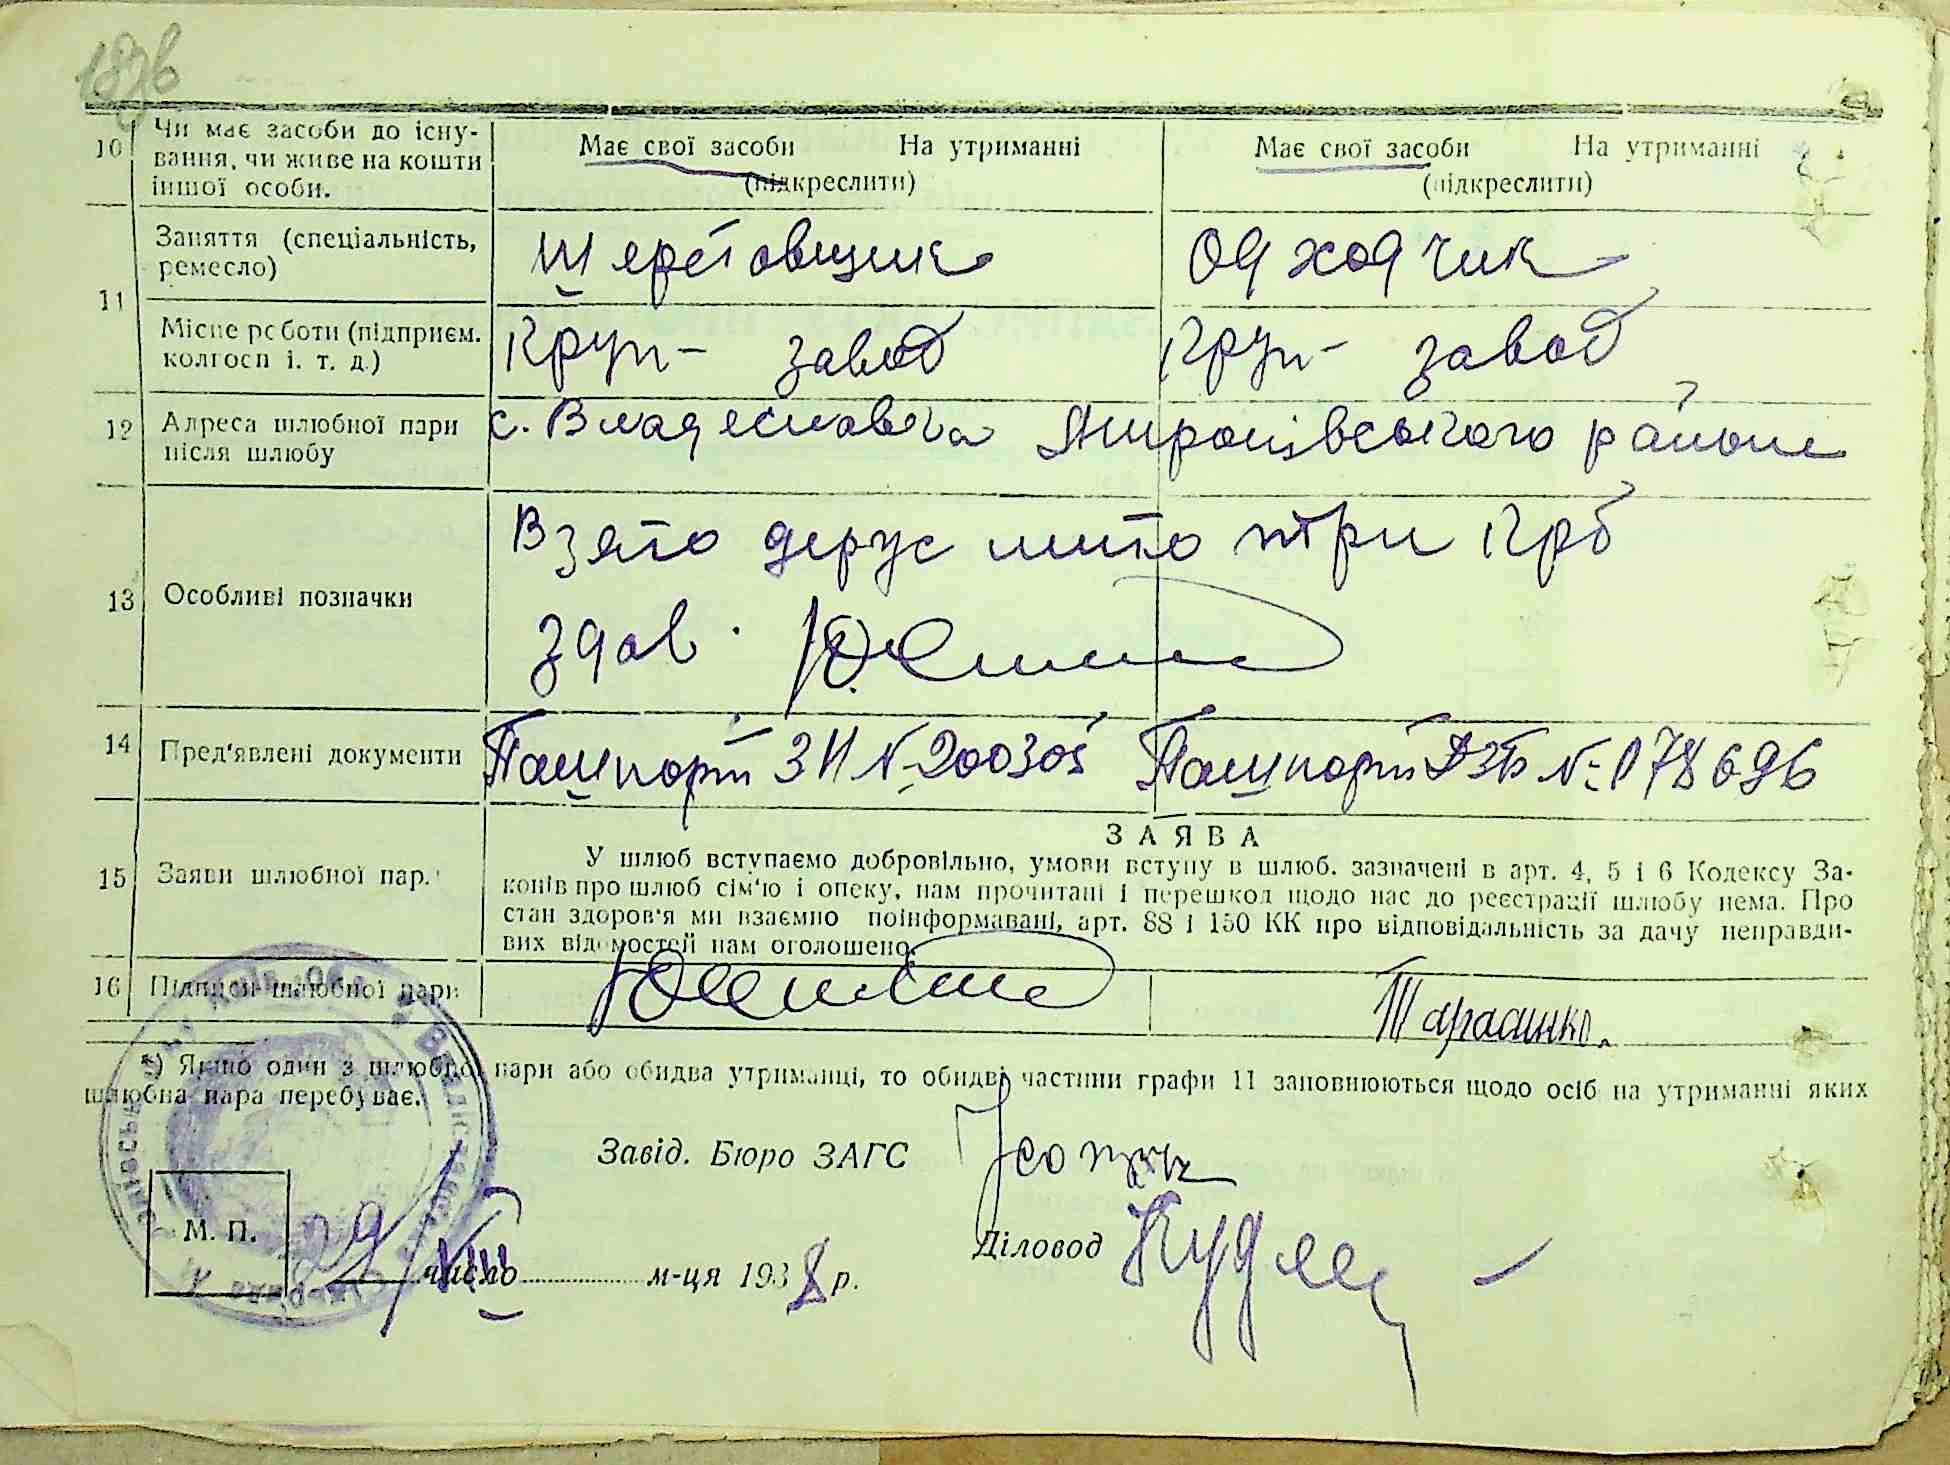 10 Чи має засоби до існу-
вання, чи живе на кошти
іншої особи.
Має свої засоби На утриманні
(підкреслити)
Має свої засоби На утриманні
(підкреслити)
11 Заняття (спеціальність,
ремесло)
одходчик
Місце роботи (підприєм.
колгосп і. т. д.)
Круп- завод
Круп- завод
12 Адреса шлюбної пари
після шлюбу
с. Владеславка Миронівського району
13 Особливі позначки
Взято держ мито три крб
14 Пред'явлені документи
Пашпорт ЗИ № 200305
Пашпорт № 178696
15 Заяви шлюбної пар.
ЗАЯВА
У шлюб вступаємо добровільно, умови вступу в шлюб. зазначені в арт. 4, 5 і 6 Кодексу За-
конів про шлюб сім'ю і опеку, нам прочитані і перешкод щодо нас до реєстрації шлюбу нема. Про
стан здоров'я ми взаємно поінформавані, арт. 88 і 150 КК про відповідальність за дачу неправди-
вих відомостей нам оголошено.
16 Підписи шлюбної пари
*) Якщо один з шлюбної пари або обидва утриманці, то обидві частини графи 11 заповнюються щодо осіб на утриманні яких
шлюбна пара перебуває.
Завід. Бюро ЗАГС
Діловод
М. П.
29/VIII число м-ця 1938 р.